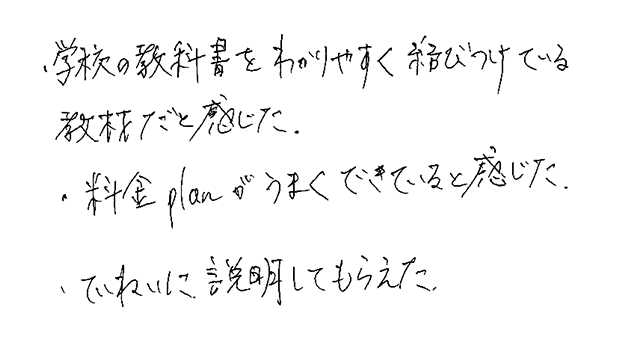 ・学校の教科書をわかりやすく結びつけている
教材だと感じた.
・料金planがうまくできていると感じた.
・ていねいに説明してもらえた.